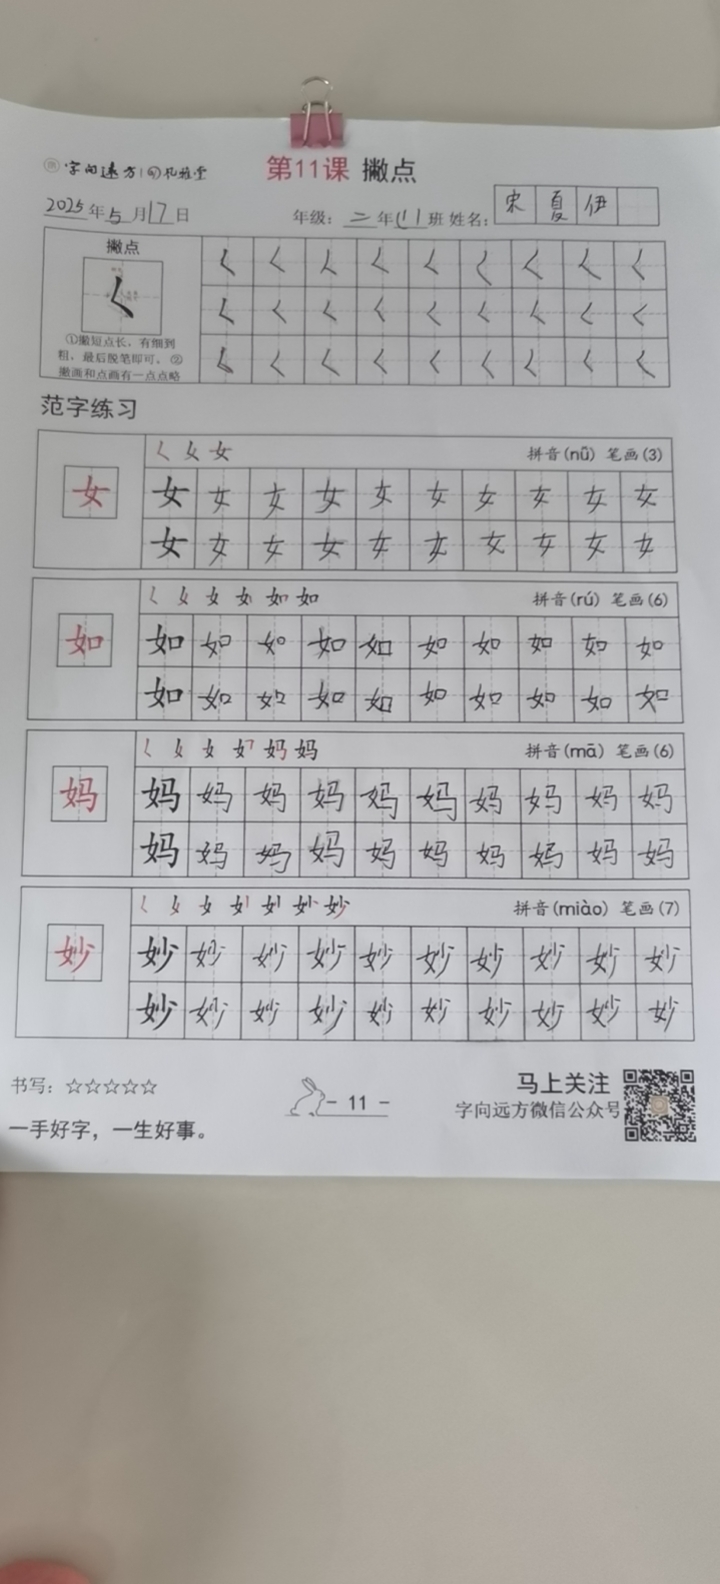 字向远方 礼雅堂
第11课 撇点
2025年5月17日 年级：二年(1)班 姓名：宋夏伊
撇点
①撇短点长，有细到
粗，最后脱笔即可。②
撇画和点画有一点点略
范字练习
拼音(nǚ) 笔画(3)
女 女 女 女 女 女 女 女 女 女 女
女 女 女 女 女 女 女 女 女 女
女 如 如 拼音(rú) 笔画(6)
如 如 如 如 如 如 如 如 如 如 如
如 如 如 如 如 如 如 如 如 如
女 妈 妈 拼音(mā) 笔画(6)
妈 妈 妈 妈 妈 妈 妈 妈 妈 妈 妈
妈 妈 妈 妈 妈 妈 妈 妈 妈 妈
女 妙 拼音(miào) 笔画(7)
妙 妙 妙 妙 妙 妙 妙 妙 妙 妙 妙
妙 妙 妙 妙 妙 妙 妙 妙 妙 妙
书写：☆☆☆☆☆ - 11 - 马上关注
字向远方微信公众号
一手好字，一生好事。